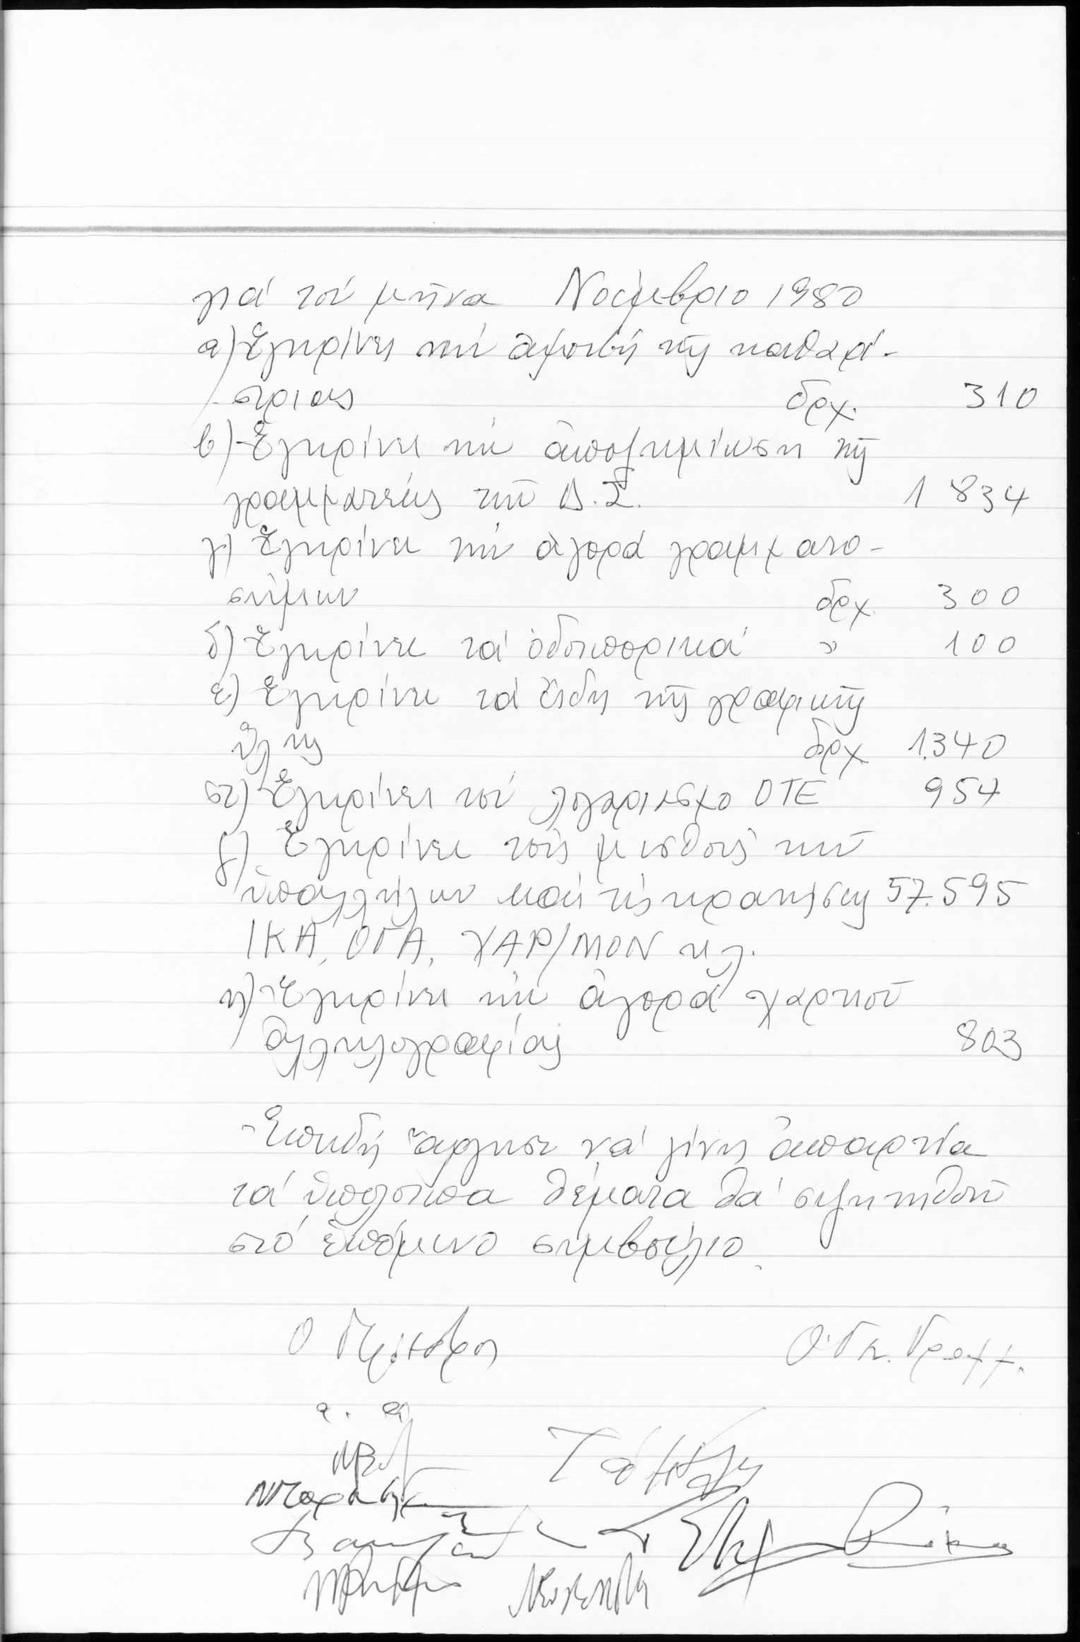 γιά τόν μῆνα Νοέμβριο 1980
α) Ἐγκρίνει τήν ἀμοιβή τῆς καθαρί-
στριας δρχ. 310
β) Ἐγκρίνει τήν ἀποζημίωση τῆς
γραμματέως τοῦ Δ.Σ. 1 834
γ) Ἐγκρίνει τήν ἀγορά γραμματο-
σήμων δρχ. 300
δ) Ἐγκρίνει τά ὁδοιπορικά " 100
ε) Ἐγκρίνει τά εἴδη τῆς γραφικῆς
ὕλης δρχ 1.340
στ) Ἐγκρίνει τόν λογαριασμό ΟΤΕ 954
ζ) Ἐγκρίνει τούς μισθούς τῶν
ὑπαλλήλων καί τίς κρατήσεις 57.595
ΙΚΑ, ΟΓΑ, ΧΑΡ/ΜΟΝ κλ.
η) Ἐγκρίνει τήν ἀγορά χαρτιοῦ
ἀλληλογραφίας 803
-Ἐπειδή ἄργησε νά γίνη ἀπαρτία
τά ὑπόλοιπα θέματα θά συζητηθοῦν
στό ἑπόμενο συμβούλιο.
Ο Πρόεδρος Ο Γεν. Γραμμ.